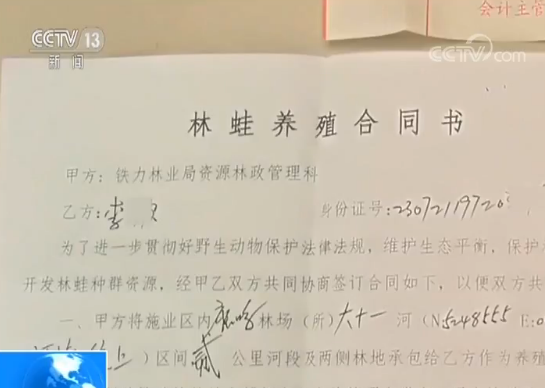 CCTV 13
新闻
会计主管
CCTV.com
林蛙养殖合同书
甲方：铁力林业局资源林政管理科
乙方：李 身份证号：2307211972
为了进一步贯彻好野生动物保护法律法规，维护生态平衡，保护
开发林蛙种群资源，经甲乙双方共同协商签订合同如下，以便双方共
一、甲方将施业区内 林场（所）大十一 河（N5248555 E:0
）区间 贰 公里河段及两侧林地承包给乙方作为养殖